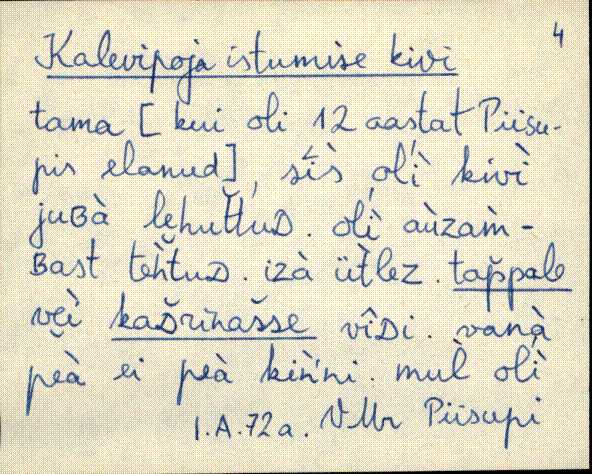 4
Kalevipoja istumise kivi
tama [kui oli 12 aastat Piisu-
pis elanud], sìs olì kivì
juʙà lehuťtuᴅ. olì aùzam̀-
ʙast teh̀tuᴅ. izà üt̀lez. tap̆pale
vèi kaᴅ̆rinas̆se vîᴅi. vanà
pĕà ei peà kiǹ'ni. mul̀ olì
I.A.72a. VMr Piisupi